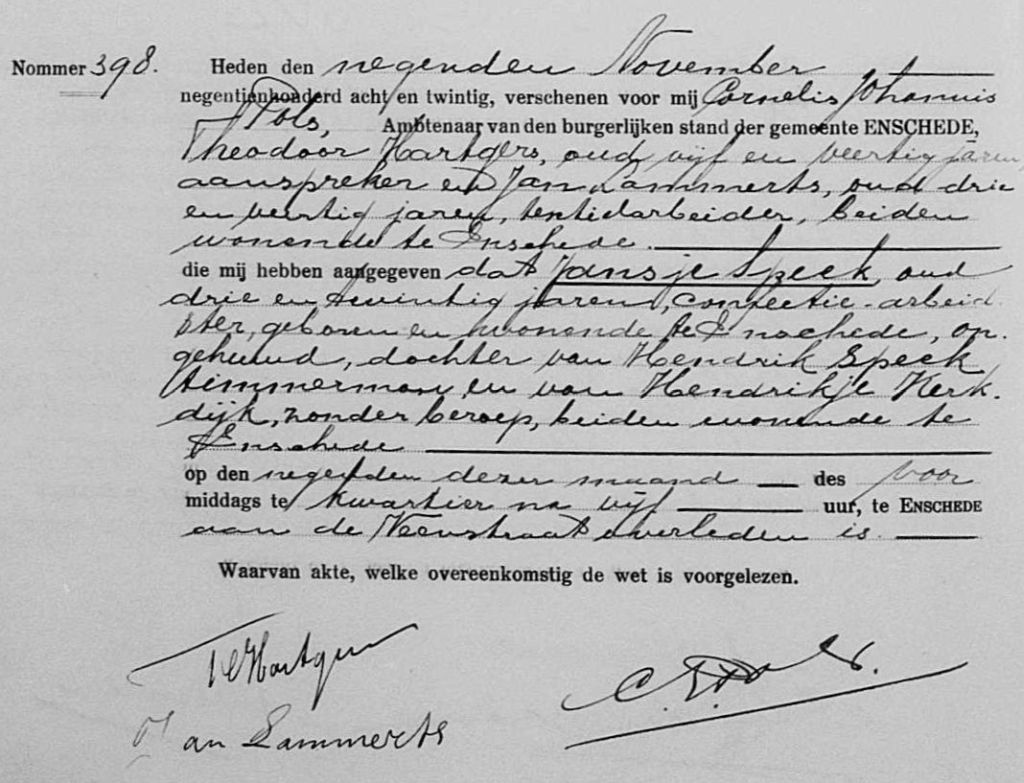 Nommer 398. Heden den negenden November
negentienhonderd acht en twintig, verschenen voor mij Cornelis Johannis
Pols, Ambtenaar van den burgerlijken stand der gemeente ENSCHEDE,
Theodoor Hartgers, oud vijf en veertig jaren,
aanspreker en Jan Lammerts, oud drie
en veertig jaren, textielarbeider, beiden
wonende te Enschede.
die mij hebben aangegeven dat Jansje Speek, oud
drie en twintig jaren, confectie-arbeid
ster, geboren en wonende te Enschede, on-
gehuwd, dochter van Hendrik Speek
timmerman en van Hendrikje Kerk-
dijk, zonder beroep, beiden wonende te
Enschede
op den negenden dezer maand des voor
middags te kwartier na vijf uur, te ENSCHEDE
aan de Veenstraat overleden is.
Waarvan akte, welke overeenkomstig de wet is voorgelezen.
Hartgers
Jan Lammerts